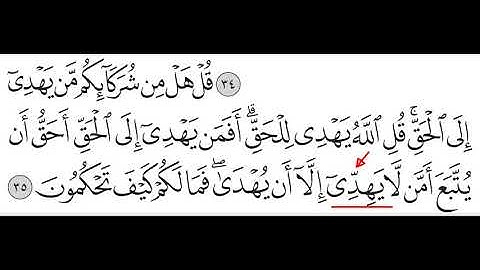 ٣٤ قُلْ هَلْ مِن شُرَكَآئِكُم مَّن يَهْدِىٓ
إِلَى ٱلْحَقِّ ۚ قُلِ ٱللَّهُ يَهْدِى لِلْحَقِّ ۗ أَفَمَن يَهْدِىٓ إِلَى ٱلْحَقِّ أَحَقُّ أَن
يُتَّبَعَ أَمَّن لَّا يَهِدِّىٓ إِلَّآ أَن يُهْدَىٰ ۖ فَمَا لَكُمْ كَيْفَ تَحْكُمُونَ ٣٥